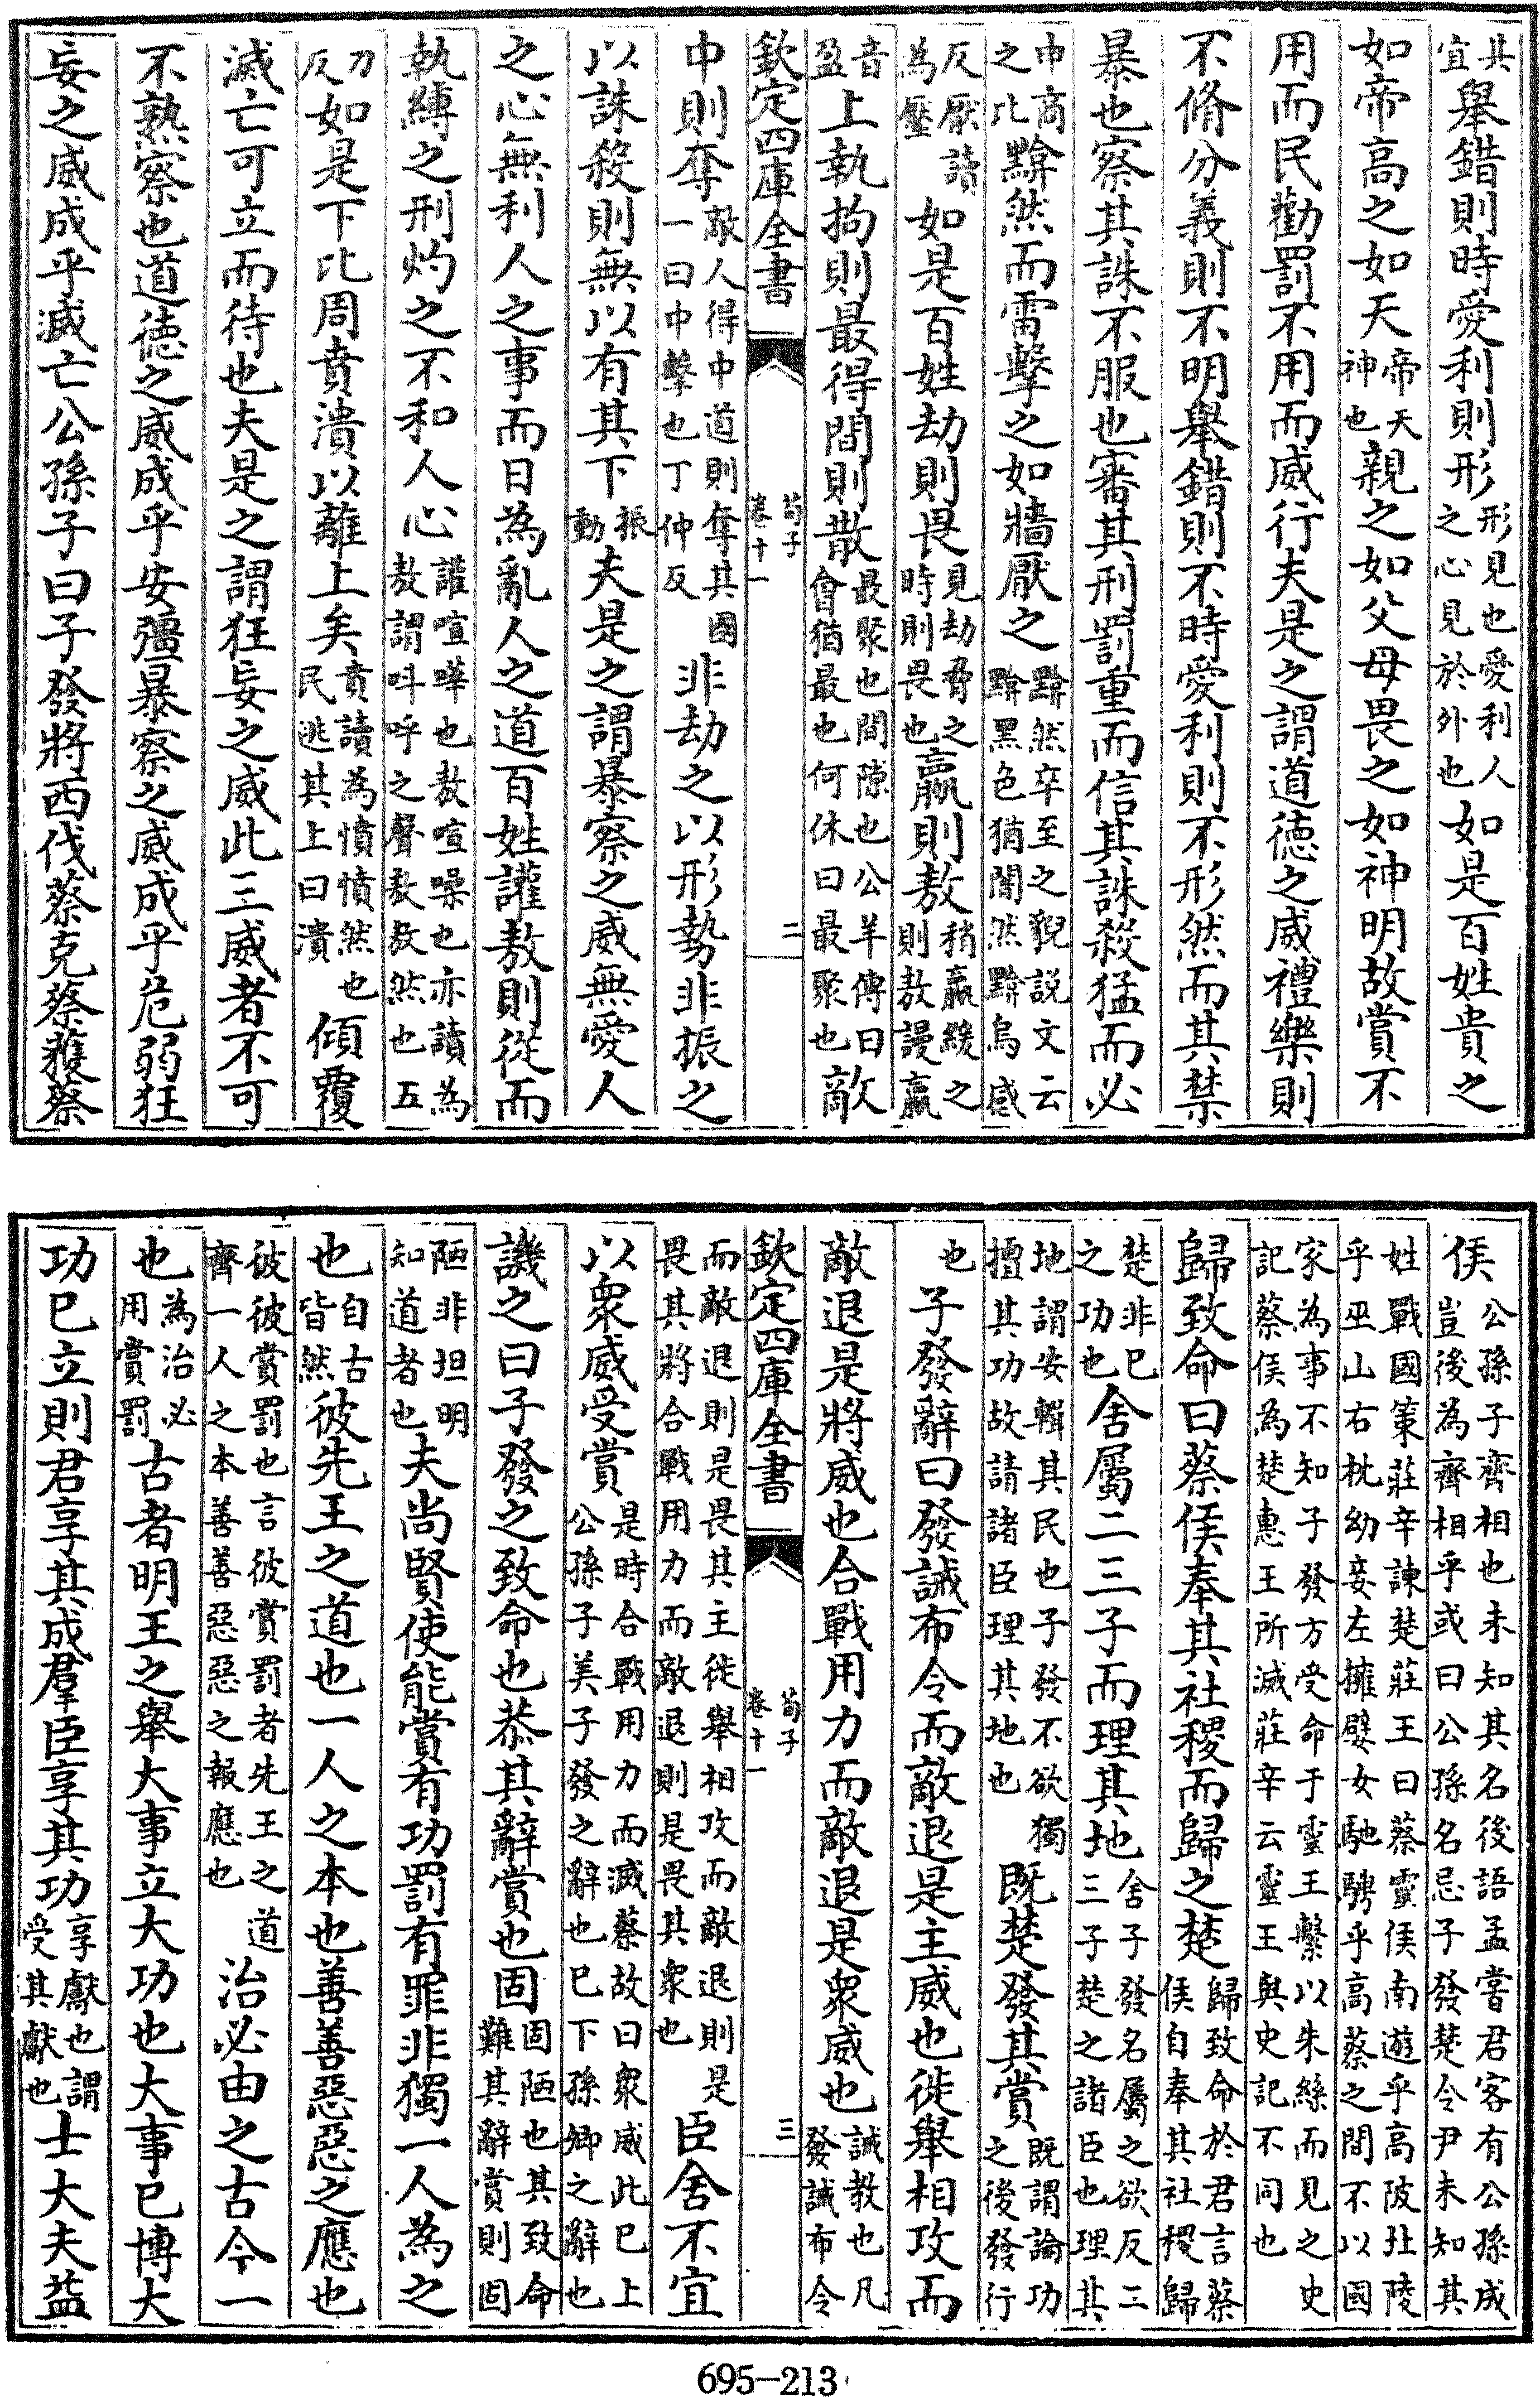 其宜舉錯則時愛利則形形見也愛利人之心見於外也如是百姓貴之
如帝高之如天帝天神也親之如父母畏之如神明故賞不
用而民勸罰不用而威行夫是之謂道德之威禮樂則
不脩分義則不明舉錯則不時愛利則不形然而其禁
暴也察其誅不服也審其刑罰重而信其誅殺猛而必
申商之比黭然而雷擊之如牆厭之黭然卒至之貌説文云黭黑色猶闇然黭烏感
反厭讀為壓如是百姓劫則畏見劫脅之時則畏也嬴則敖稍嬴緩之則敖謾嬴
音盈上執拘則最得間則散最聚也間隙也公羊傳曰會猶最也何休曰最聚也敵
欽定四庫全書 荀子卷十一 二
中則奪敵人得中道則奪其國一曰中擊也丁仲反非劫之以形勢非振之
以誅殺則無以有其下振動夫是之謂暴察之威無愛人
之心無利人之事而日為亂人之道百姓讙敖則從而
執縛之刑灼之不和人心讙喧嘩也敖喧噪也亦讀為敖謂叫呼之聲敖敖然也五
刀反如是下比周賁潰以離上矣賁讀為憤憤然也民逃其上曰潰傾覆
滅亡可立而待也夫是之謂狂妄之威此三威者不可
不熟察也道德之威成乎安彊暴察之威成乎危弱狂
妄之威成乎滅亡公孫子曰子發將西伐蔡克蔡獲蔡
侯公孫子齊相也未知其名後語孟嘗君客有公孫成豈後為齊相乎或曰公孫名忌子發楚令尹未知其
姓戰國策莊辛諫楚莊王曰蔡靈侯南遊乎高陂北陵乎巫山右枕幼妾左擁嬖女馳騁乎高蔡之間不以國
家為事不知子發方受命于靈王繫以朱絲而見之史記蔡侯為楚惠王所滅莊辛云靈王與史記不同也
歸致命曰蔡侯奉其社稷而歸之楚歸致命於君言蔡侯自奉其社稷歸
楚非已之功也舍屬二三子而理其地舍子發名屬之欲反二三子楚之諸臣也理其
地謂安輯其民也子發不欲獨擅其功故請諸臣理其地也既楚發其賞既謂論功之後發行
也子發辭曰發誡布令而敵退是主威也徙舉相攻而
敵退是將威也合戰用力而敵退是衆威也誡教也凡發誡布令
欽定四庫全書 荀子卷十一 三
而敵退則是畏其主徙舉相攻而敵退則是畏其將合戰用力而敵退則是畏其衆也臣舍不宜
以衆威受賞是時合戰用力而滅蔡故曰衆威此已上公孫子美子發之辭也已下孫卿之辭也
譏之曰子發之致命也恭其辭賞也固固陋也其致命難其辭賞則固
陋非坦明知道者也夫尚賢使能賞有功罰有罪非獨一人為之
也自古皆然彼先王之道也一人之本也善善惡惡之應也
彼彼賞罰也言彼賞罰者先王之道齊一人之本善善惡惡之報應也治必由之古今一
也為治必用賞罰古者明王之舉大事立大功也大事已博大
功已立則君享其成羣臣享其功享獻也謂受其獻也士大夫益
695-213